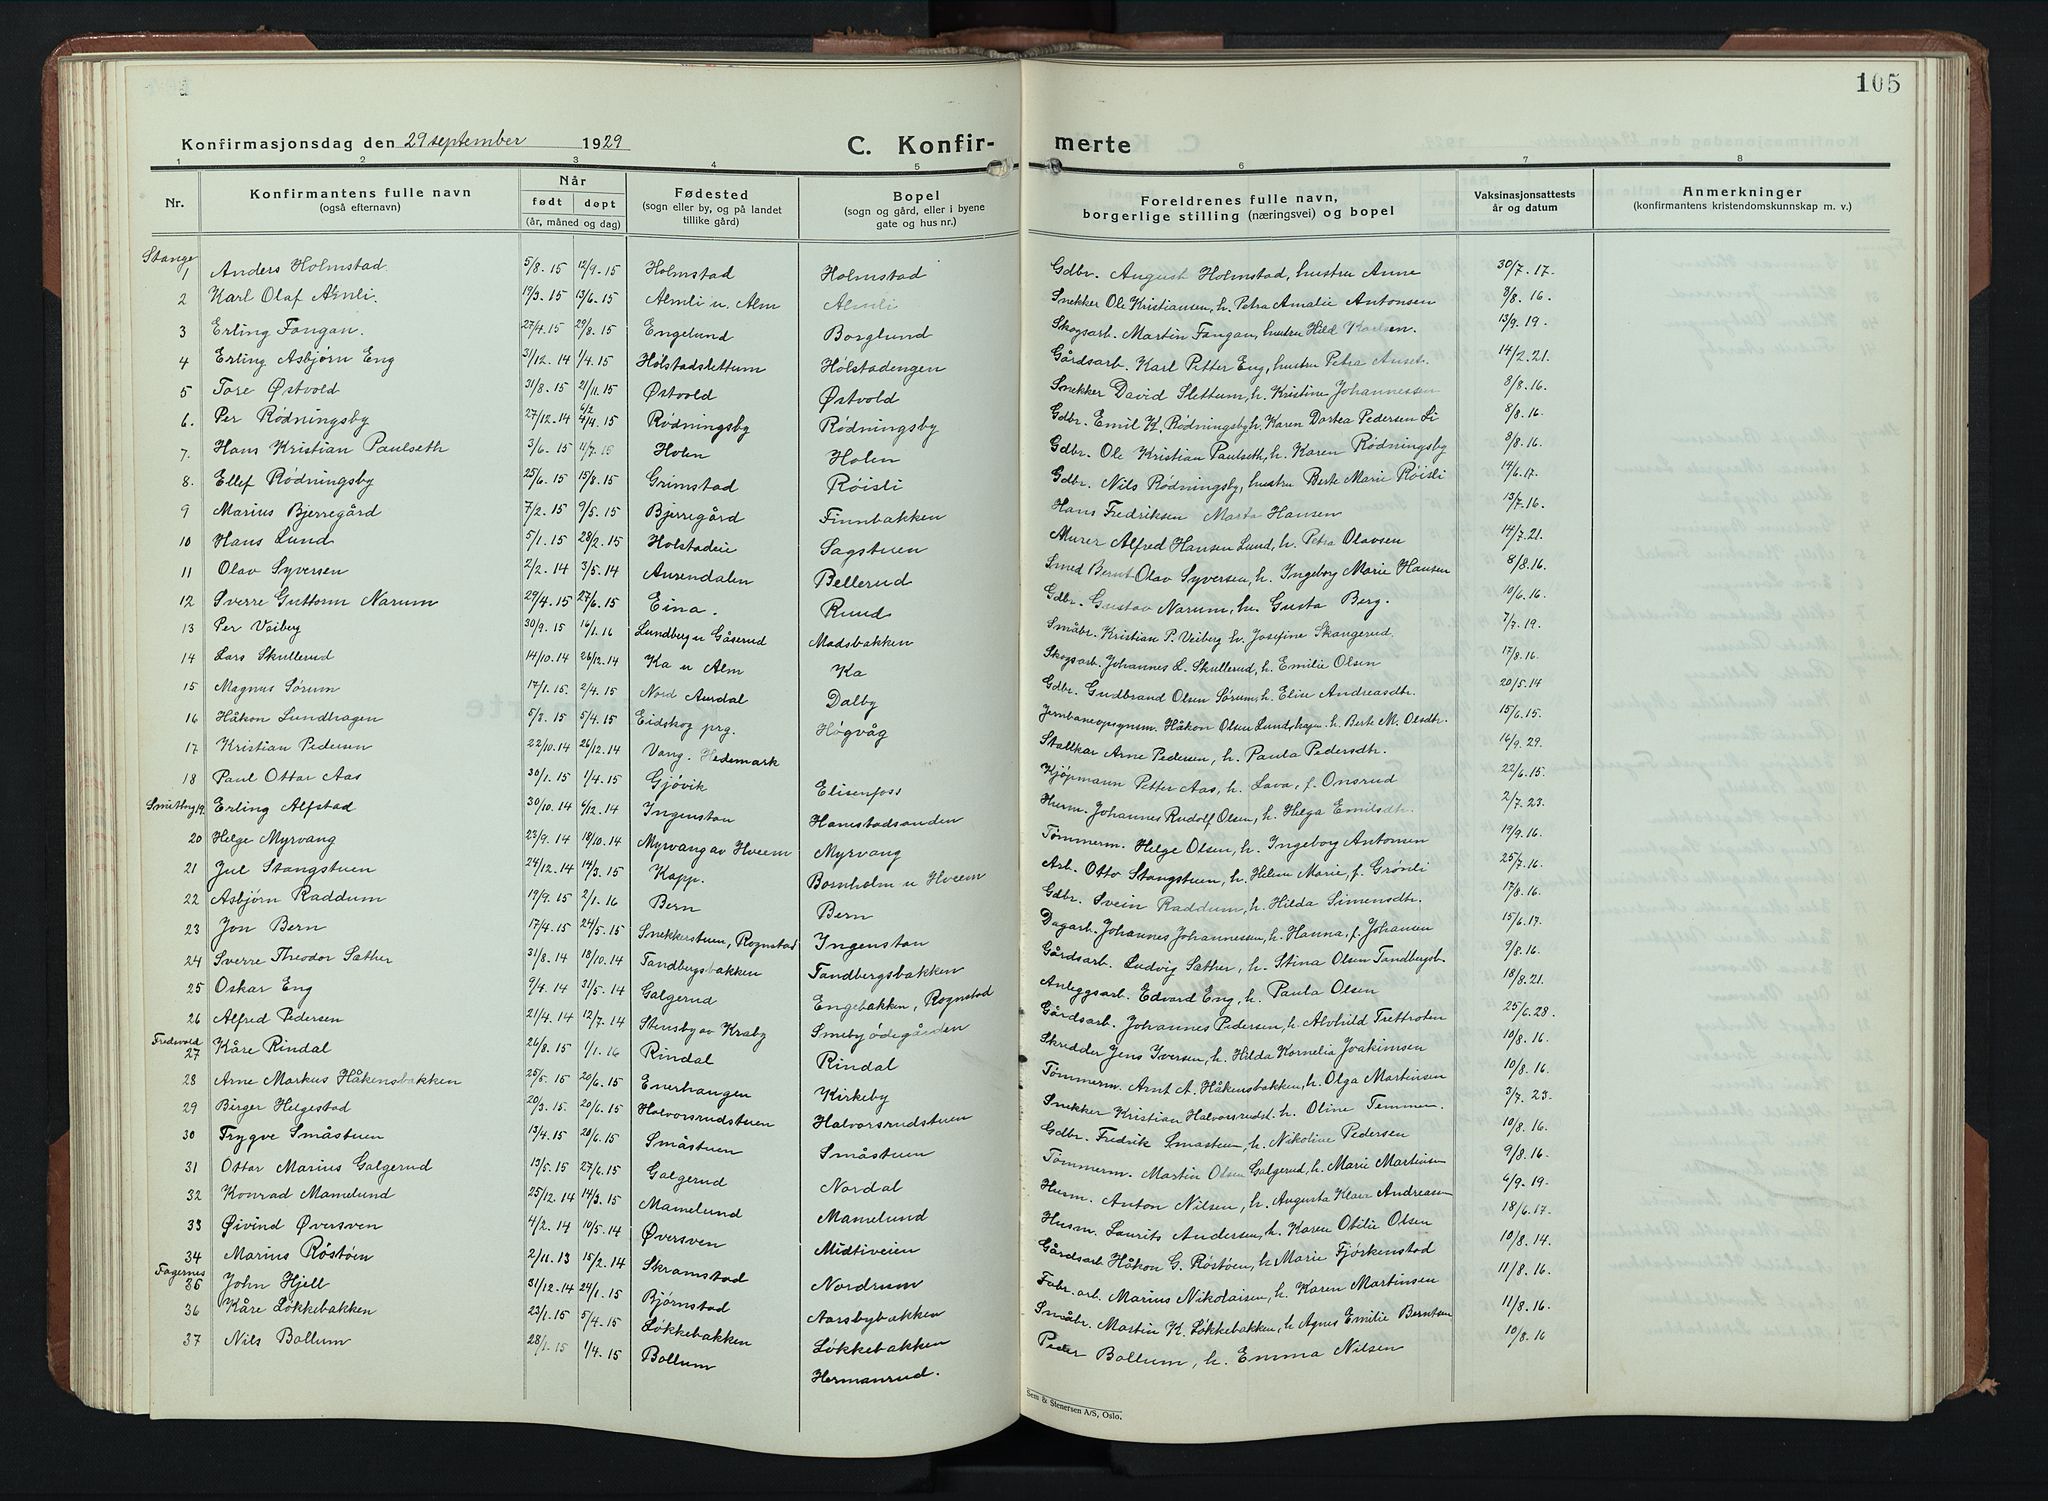 105
Konfirmasjonsdag den 29 september 1929 C. Konfir- merte
1 2 3 4 5 6 7 8
Nr. Konfirmantens fulle navn (også efternavn) Når født døpt (år, måned og dag) Fødested (sogn eller by, og på landet tillike gård) Bopel (sogn og gård, eller i byene gate og hus nr.) Foreldrenes fulle navn, borgerlige stilling (næringsvei) og bopel Vaksinasjonsattests år og datum Anmerkninger (konfirmantens kristendomskunnskap m. v.)
Stange
1 Anders Holmstad 5/8. 15 12/9. 15 Holmstad Holmstad Gdbr. August Holmstad, hustru Anne 30/7. 17.
2 Karl Olaf Almli. 19/3. 15 13/6. 15 Almli u. Alm Almli Snekker Ole Kristiansen, h. Petra Amalie Antonsen 8/8. 16.
3 Erling Fangan. 27/4. 15 29/8. 15 Engelund Borglund Skogsarb. Martin Fangan, hustru Hild Karlsen. 13/9. 19.
4 Erling Asbjørn Eng 31/12. 14 1/4. 15 Hólstadslettum Hólstadengen Gårdsarb. Karl Petter Eng, hustru Petra 14/2. 21.
5 Tore Østvold 31/8. 15 21/11. 15 Østvold Østvold Snekker David Slettum, h. Kristine Johannessen 8/8. 16.
6. Per Rødningsby 27/12. 14 6/2 4/4. 15 Rødningsby Rødningsby Gdbr. Emil K. Rødningsby h. Karen Dortea Pedersen Li 8/8. 16.
7. Hans Kristian Paulseth 3/6. 15 11/7. 15 Holen Holen Gdbr. Ole Kristian Paulseth, h. Karen Rødningsby 8/8. 16.
8. Ellef Rødningsby 25/6. 15 15/8. 15 Grimstad Røisli Gdbr. Nils Rødningsby, hustru Berte Marie Røisli 14/6. 17.
9 Marius Bjerregård 7/2. 15 9/5. 15 Bjerregård Finnbakken Hans Fredriksen Marta Hansen 13/7. 16.
10 Hans Lund 5/1. 15 28/2. 15 Holstadeie Sagstuen Murer Alfred Hansen Lund, h. Petra Olavsen 14/7. 21.
11 Olav Syversen 2/2. 14 3/5. 14 Aurendalen Bellerud Smed Bernt Olav Syversen, h. Ingeborg Marie Hansen 8/8. 16.
12 Sverre Guttorm Narum 29/4. 15 27/6. 15 Eina. Ruud Gdbr. Gustav Narum, h. Gusta Berg. 10/6. 16.
13 Per Veiberg 30/9. 15 16/1. 16 Lundberg u Gåserud Madsbakken Småbr. Kristian P. Veiberg h. Josefine Skangerud. 7/7. 19.
14 Lars Skullerud 14/10. 14 26/12. 14 Ka u Alm Ka Skogsarb. Johannes L. Skullerud, h. Emilie Olsen 17/8. 16.
15 Magnus Sørum 17/1. 15. 2/4. 15 Nord Aurdal Dalby Gdbr. Gudbrand Olsen Sørum, h. Elise Andreasdtr. 20/5. 14
16 Håkon Lundhagen 5/3. 15 5/4. 15 Eidskog prg. Høgvåg Jernbaneopsynsm. Håkon Olsen Lundhagen h. Berte M. Olsdtr. 15/6. 15.
17 Kristian Pedersen 22/10. 14 26/12. 14 Vang. Hedemark Stallkar Arne Pedersen, h. Paula Pedersdtr. 16/9. 29.
18 Paul Ottar Aas 30/1. 15 1/4. 15 Gjøvik Elisenfoss Kjøpmann Petter Aas, h. Lava, f. Onsrud 22/6. 15.
19. Erling Alfstad 30/10. 14 6/12. 14 Ingenstau Hanestadsanden Husm. Johannes Rudolf Olsen, h. Helga Emilsdtr. 2/7. 23.
20 Helge Myrvang 23/9. 14 18/10. 14 Myrvang av Hveem Myrvang Tømmerm. Helge Olsen, h. Ingeborg Antonsen 19/9. 16.
21 Jul Stangstuen 24/12. 14 14/3. 15 Kapp. Bornholm u Hveem Arb. Otto Stangstuen, h. Helene Marie, f. Grønli 25/7. 16.
22 Asbjørn Raddum 19/9. 15 2/1. 16 Bern Bern Gdbr. Svein Raddum, h. Hilda Simensdtr. 17/8. 16.
23 Jon Bern 17/4. 15 24/5. 15 Snekkerstuen, Rognstad Ingenstau Dagarb. Johannes Johannessen, h. Hanna, f. Johansen 15/6. 17.
24 Sverre Theodor Sæther 31/8. 14 18/10. 14 Tandbergsbakken Tandbergsbakken Gårdsarb. Ludvig Sæther, h. Stina Olsen Tandbergsb. 9/8. 16.
25 Oskar Eng 9/4. 14 31/5. 14 Galgerud Engebakken, Rognstad Anleggsarb. Edvard Eng, h. Paula Olsen 18/8. 21.
26 Alfred Pedersen 21/4. 14 12/7. 14 Stensby av Kraby Smebyødegården Gårdsarb. Johannes Pedersen, h. Alvhild Trettroten 25/6. 28.
Fredvold
27 Kåre Rindal 26/8. 15 1/1. 16 Rindal Rindal Skredder Jens Iversen, h. Hilda Kornelia Joakimsen 10/8. 16.
28 Arne Markus Håkensbakken 25/5. 15 20/6. 15 Enerhaugen Kirkeby Tømmerm. Arnt A. Håkensbakken, h. Olga Martinsen 10/8. 16.
29 Birger Helgestad 20/3. 15. 20/6. 15 Halvorsrudstuen Halvorsrudstuen Snekker Kristian Halvorsrudst. h. Oline Temmen. 3/7. 23.
30 Trygve Småstuen 13/4. 15 20/6. 15 Småstuen Småstuen Gdbr. Fredrik Smastuen, h. Nikoline Pedersen 10/8. 16.
31 Ottar Marius Galgerud 13/5. 15 27/6. 15 Galgerud Nordal Tømmerm. Martin Olsen Galgerud, h. Marie Martinsen 9/8. 16.
32 Konrad Mamelund 25/12. 14 14/3. 15 Mamelund Mamelund Husm. Anton Nilsen, h. Augusta Klara Andreasen 6/9. 19.
33 Øivind Øversven 4/2. 14 10/5. 14 Øversven Midtiveien Husm. Laurits Andersen, h. Karen Otilie Olsen 18/6. 17.
34 Marius Røstøen 2/11. 13 15/2. 14 Skramstad Nordrum Gårdsarb. Håkon G. Røstøen, h. Marie Fjørkenstad 10/8. 14.
Fagernes
35 John Hjell 31/12. 14 24/1. 15 Bjørnstad Aarsbybakken Fabr. arb. Marius Nikolaisen, h. Karen Martinsen 11/8. 16.
36 Kåre Løkkebakken 23/1. 15 5/4. 15 Løkkebakken Løkkebakken Småbr. Martin K. Løkkebakken, h. Agnes Emilie Berntsen 11/8. 16.
37 Nils Bollum 28/1. 15 1/4. 15 Bollum Hermanrud. Peder Bollum, h. Emma Nilsen 10/8. 16
Sem & Stenersen A/S, Oslo.